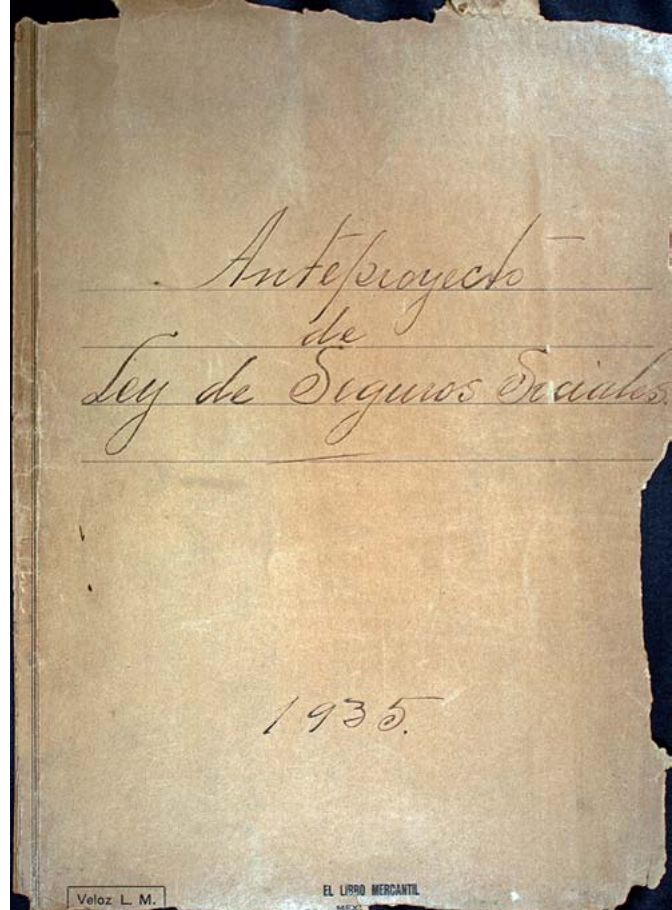 Anteproyecto
de
Ley de Seguros Sociales.
1935.
Veloz L. M.
EL LIBRO MERCANTIL